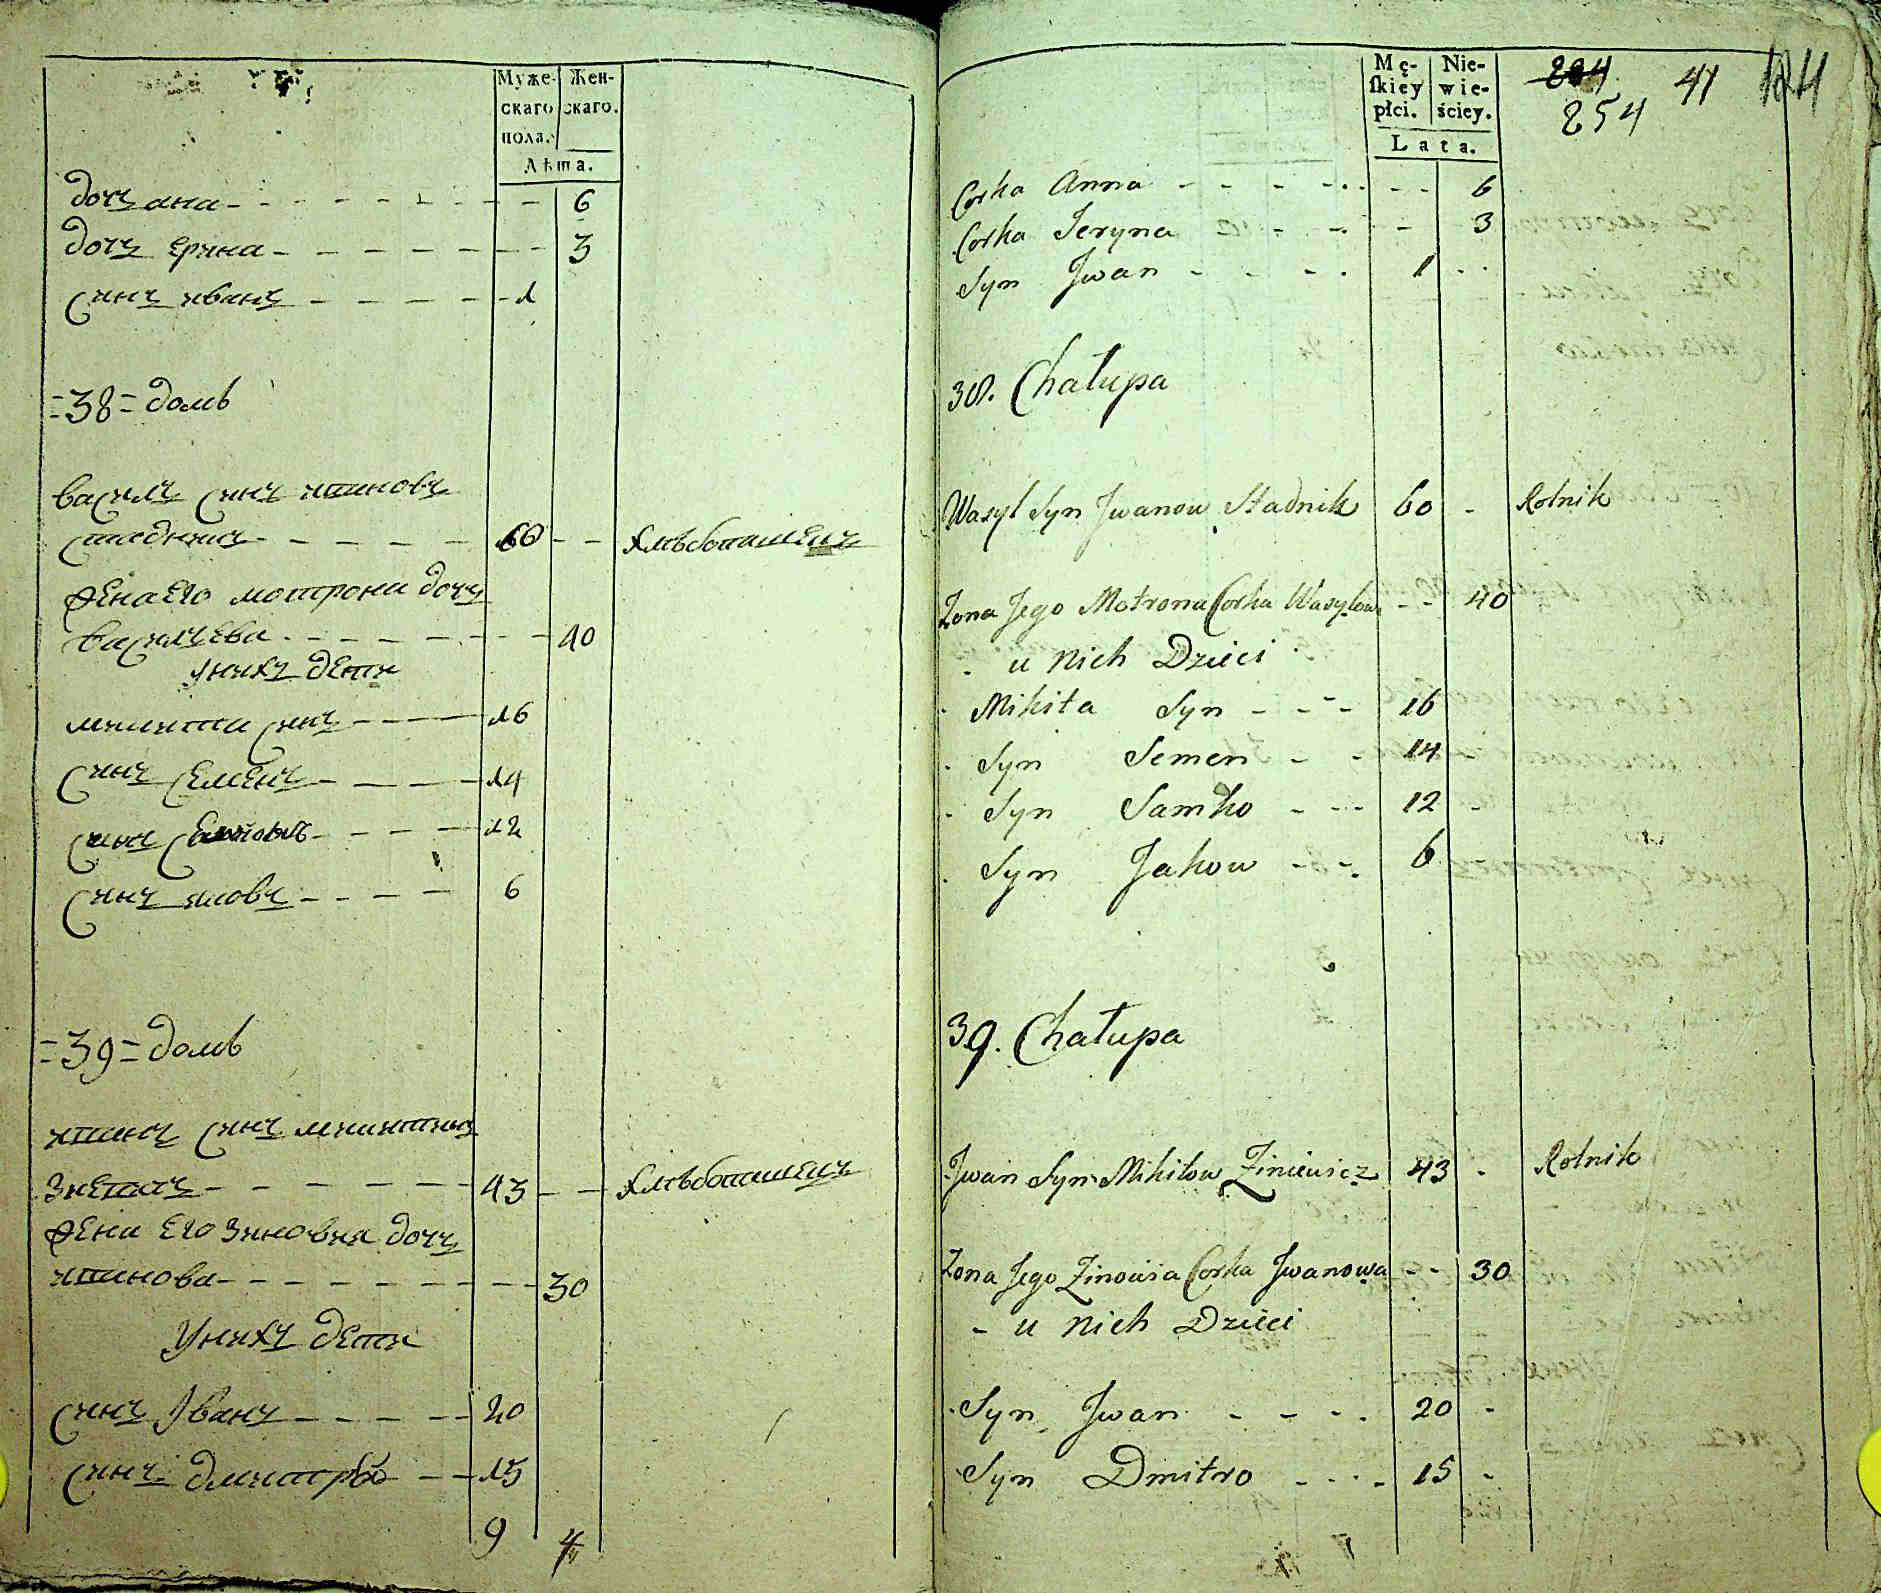 Муже-
скаго
пола.
Жен-
скаго.
Лѣта.
дочъ ана - - - - - - - 6
дочъ ерина - - - - - - - 3
синъ иванъ - - - - - 1
=38= домъ
василъ синъ
60 - - хлѣбопашецъ
жена его мотрона дочъ
василцева - - - - - - 40
унихъ дети
микита синъ - - - - 16
синъ семенъ - - - - 14
синъ - - - - 12
синъ яковъ - - - - 6
=39= домъ
синъ
43 - - хлѣбопашецъ
жена его зиновия дочъ
- - - - - - - 30
унихъ дети
синъ Иванъ - - - - - 20
синъ дмитро - - 15
9 4
Mę-
skiey
płci.
Nie-
wie-
ściey.
Lata.
254
41
124
Corka Anna - - - - - - 6
Corka Jeryna - - - 3
Syn Jwan - - - - 1 - -
38. Chałupa
Wasyl Syn Jwanow Stadnik 60 - Rolnik
Zona Jego Motrona Corka Wasylowa - - 40
- u nich Dzieci
Mikita Syn - - - 16
Syn Semen - - 14 -
Syn Samko - - - 12 -
Syn Jakow - - - 6
39. Chałupa
Jwan Syn Mikitow Ziniewicz 43 - Rolnik
Zona Jego Zinowia Corka Jwanowa - - 30
- u nich Dzieci
Syn Jwan - - - - 20 -
Syn Dmitro - - - - 15 -